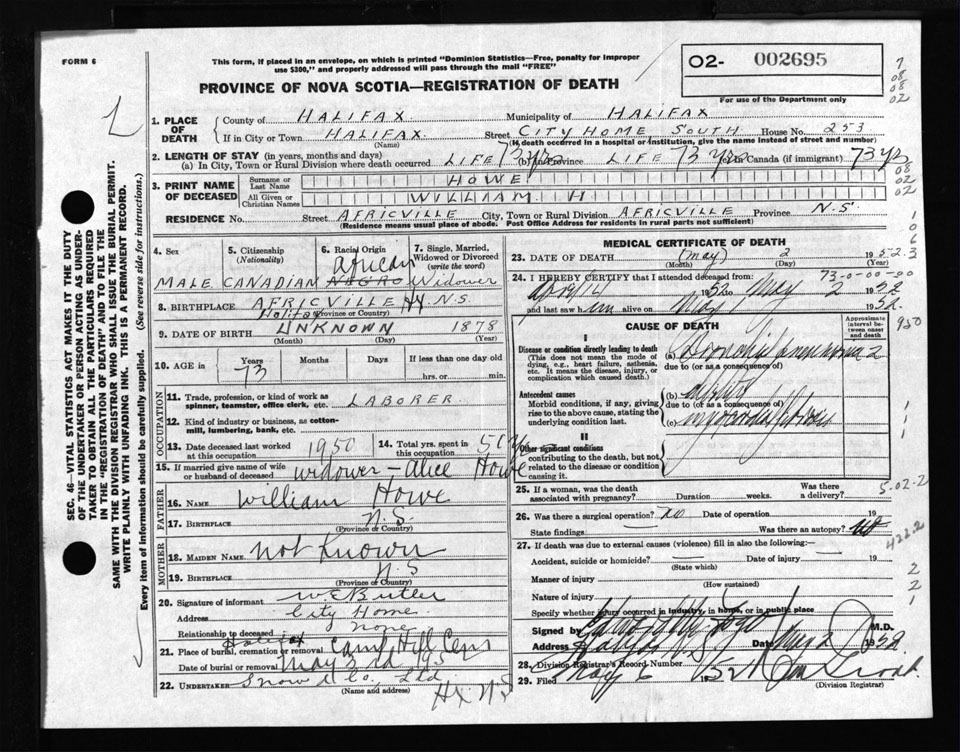 FORM 6
This form, if placed in an envelope, on which is printed "Dominion Statistics—Free, penalty for improper
use $300," and properly addressed will pass through the mail "FREE"
O2- 002695
For use of the Department only
7
08
08
02
PROVINCE OF NOVA SCOTIA—REGISTRATION OF DEATH
1. PLACE OF DEATH
County of HALIFAX. Municipality of HALIFAX
If in City or Town HALIFAX. Street CITY HOME, SOUTH House No. 253
(Name) (If death occurred in a hospital or institution, give the name instead of street and number)
2. LENGTH OF STAY (in years, months and days)
(a) In City, Town or Rural Division where death occurred LIFE 73 yrs (b) In Province LIFE 73 yrs (c) In Canada (if immigrant) 73 yrs
08
02
02
3. PRINT NAME OF DECEASED
Surname or Last Name HOWE
All Given or Christian Names WILLIAM H
RESIDENCE No. Street AFRICVILLE City, Town or Rural Division AFRICVILLE Province N.S.
(Residence means usual place of abode. Post Office Address for residents in rural parts not sufficient)
4. Sex MALE
5. Citizenship (Nationality) CANADIAN
6. Racial Origin african NEGRO
7. Single, Married, Widowed or Divorced (write the word) Widower
8. BIRTHPLACE AFRICVILLE Hx N.S.
Halifax (Province or Country)
9. DATE OF BIRTH UNKNOWN 1878
(Month) (Day) (Year)
10. AGE in Years Months Days If less than one day old
73 hrs. or min.
OCCUPATION
11. Trade, profession, or kind of work as spinner, teamster, office clerk, etc. LABORER
12. Kind of industry or business, as cotton-mill, lumbering, bank, etc.
13. Date deceased last worked at this occupation 1950
14. Total yrs. spent in this occupation 50 yrs
15. If married give name of wife or husband of deceased widower - Alice Howe
FATHER
16. NAME William Howe
17. BIRTHPLACE N.S.
(Province or Country)
MOTHER
18. MAIDEN NAME not known
19. BIRTHPLACE N.S
(Province or Country)
20. Signature of informant W. E Butler
Address City Home
Relationship to deceased none
21. Place of burial, cremation or removal Halifax Camp Hill Cem
Date of burial or removal May 3rd 195
22. UNDERTAKER Snow & Co, Ltd
(Name and address)
Hx N.S
MEDICAL CERTIFICATE OF DEATH
23. DATE OF DEATH (May) 2 1952
(Month) (Day) (Year)
73-0-00-00
24. I HEREBY CERTIFY that I attended deceased from:
1952 to May 2 1952
and last saw him alive on May 1 1952.
CAUSE OF DEATH
Approximate interval between onset and death
I
Disease or condition directly leading to death
(This does not mean the mode of dying, e.g., heart failure, asthenia, etc. It means the disease, injury, or complication which caused death.)
(a) pneumonia 2
due to (or as a consequence of)
Antecedent causes
Morbid conditions, if any, giving rise to the above cause, stating the underlying condition last.
(b)
due to (or as a consequence of)
(c) myocardial
II
Other significant conditions
contributing to the death, but not related to the disease or condition causing it.
25. If a woman, was the death associated with pregnancy? Duration weeks. Was there a delivery?
26. Was there a surgical operation? No Date of operation 19
State findings Was there an autopsy? no
27. If death was due to external causes (violence) fill in also the following:—
Accident, suicide or homicide? Date of injury 19
(State which)
Manner of injury
(How sustained)
Nature of injury
Specify whether injury occurred in industry, in home, or in public place
Signed by M.D.
Address Halifax N.S Date May 2 1952
28. Division Registrar's Record Number
29. Filed May 6 1952
(Division Registrar)
950
5-02-2
422.2
2
2
1
SEC. 46—VITAL STATISTICS ACT MAKES IT THE DUTY
OF THE UNDERTAKER OR PERSON ACTING AS UNDER-
TAKER TO OBTAIN ALL THE PARTICULARS REQUIRED
IN THE "REGISTRATION OF DEATH" AND TO FILE THE
SAME WITH THE DIVISION REGISTRAR WHO SHALL ISSUE THE BURIAL PERMIT.
WRITE PLAINLY WITH UNFADING INK. THIS IS A PERMANENT RECORD.
Every item of information should be carefully supplied. (See reverse side for instructions.)